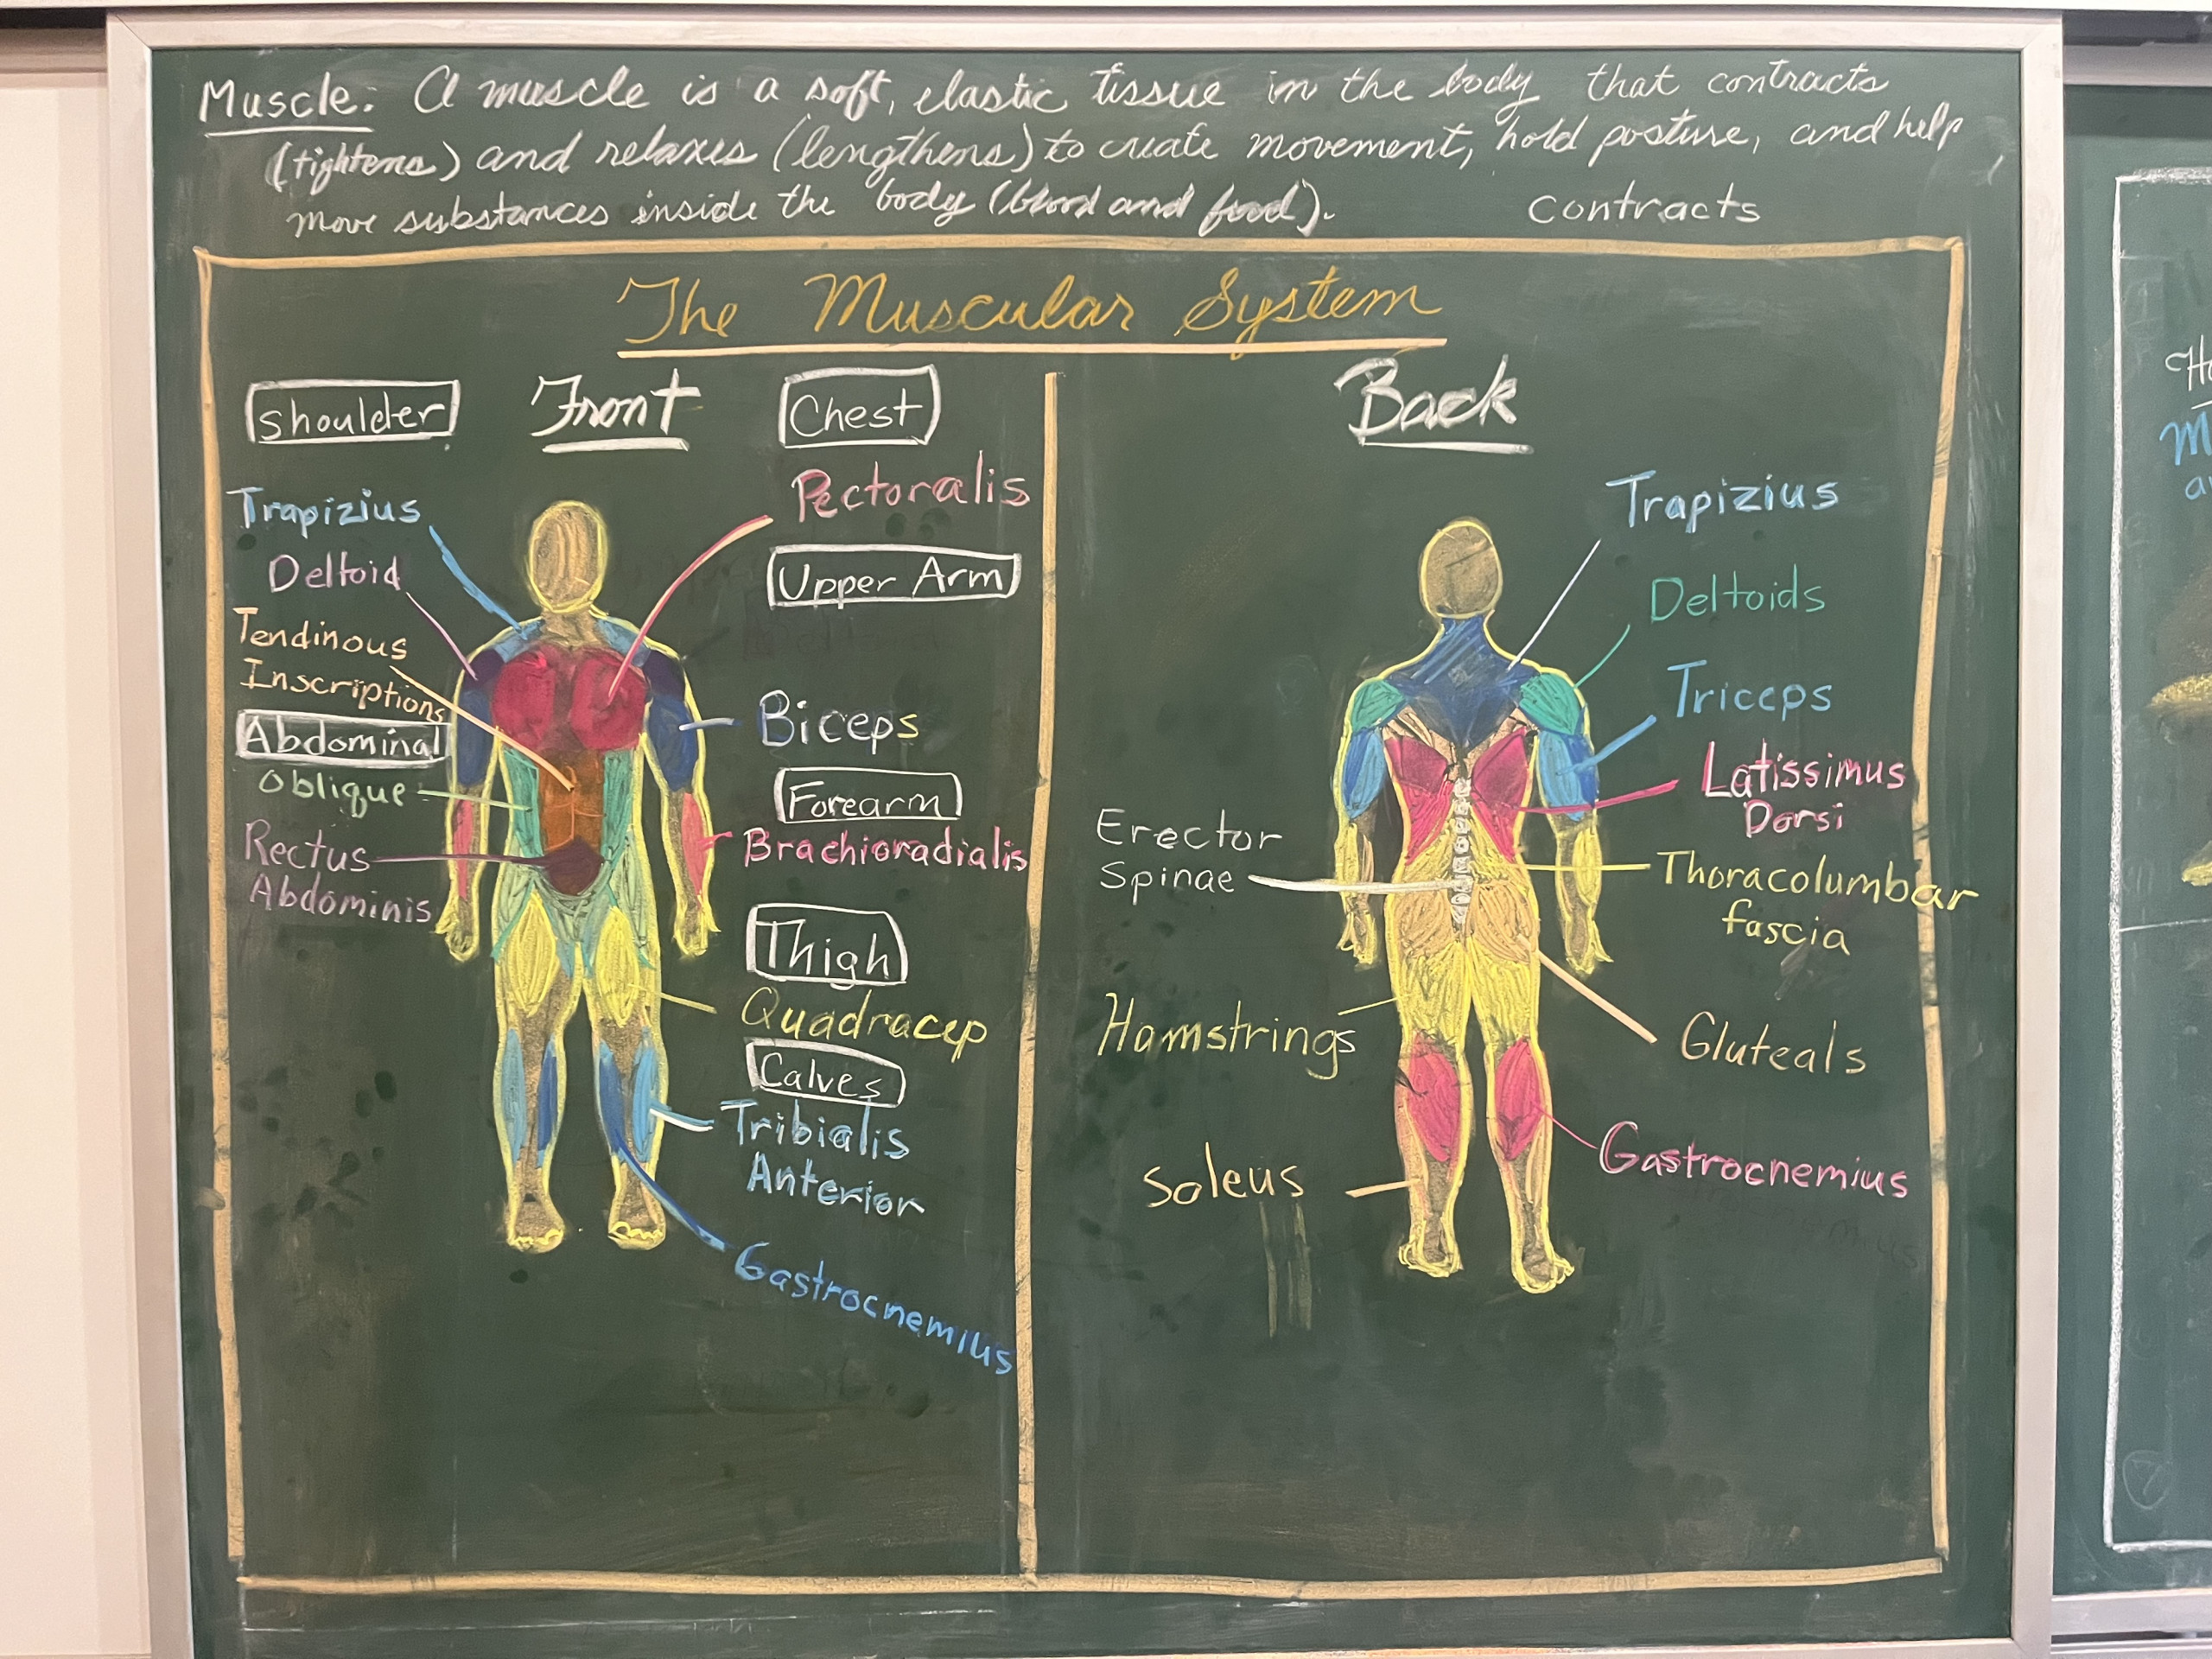 Muscle: A muscle is a soft, elastic tissue in the body that contracts
(tightens) and relaxes (lengthens) to create movement, hold posture, and help
move substances inside the body (blood and food).
contracts
The Muscular System
Front
Shoulder
Trapizius
Deltoid
Tendinous
Inscriptions
Abdominal
Oblique
Rectus
Abdominis
Chest
Pectoralis
Upper Arm
Biceps
Forearm
Brachioradialis
Thigh
Quadracep
Calves
Tribialis
Anterior
Gastrocnemius
Back
Trapizius
Deltoids
Triceps
Latissimus
Dorsi
Erector
Spinae
Thoracolumbar
fascia
Hamstrings
Gluteals
Gastrocnemius
Soleus